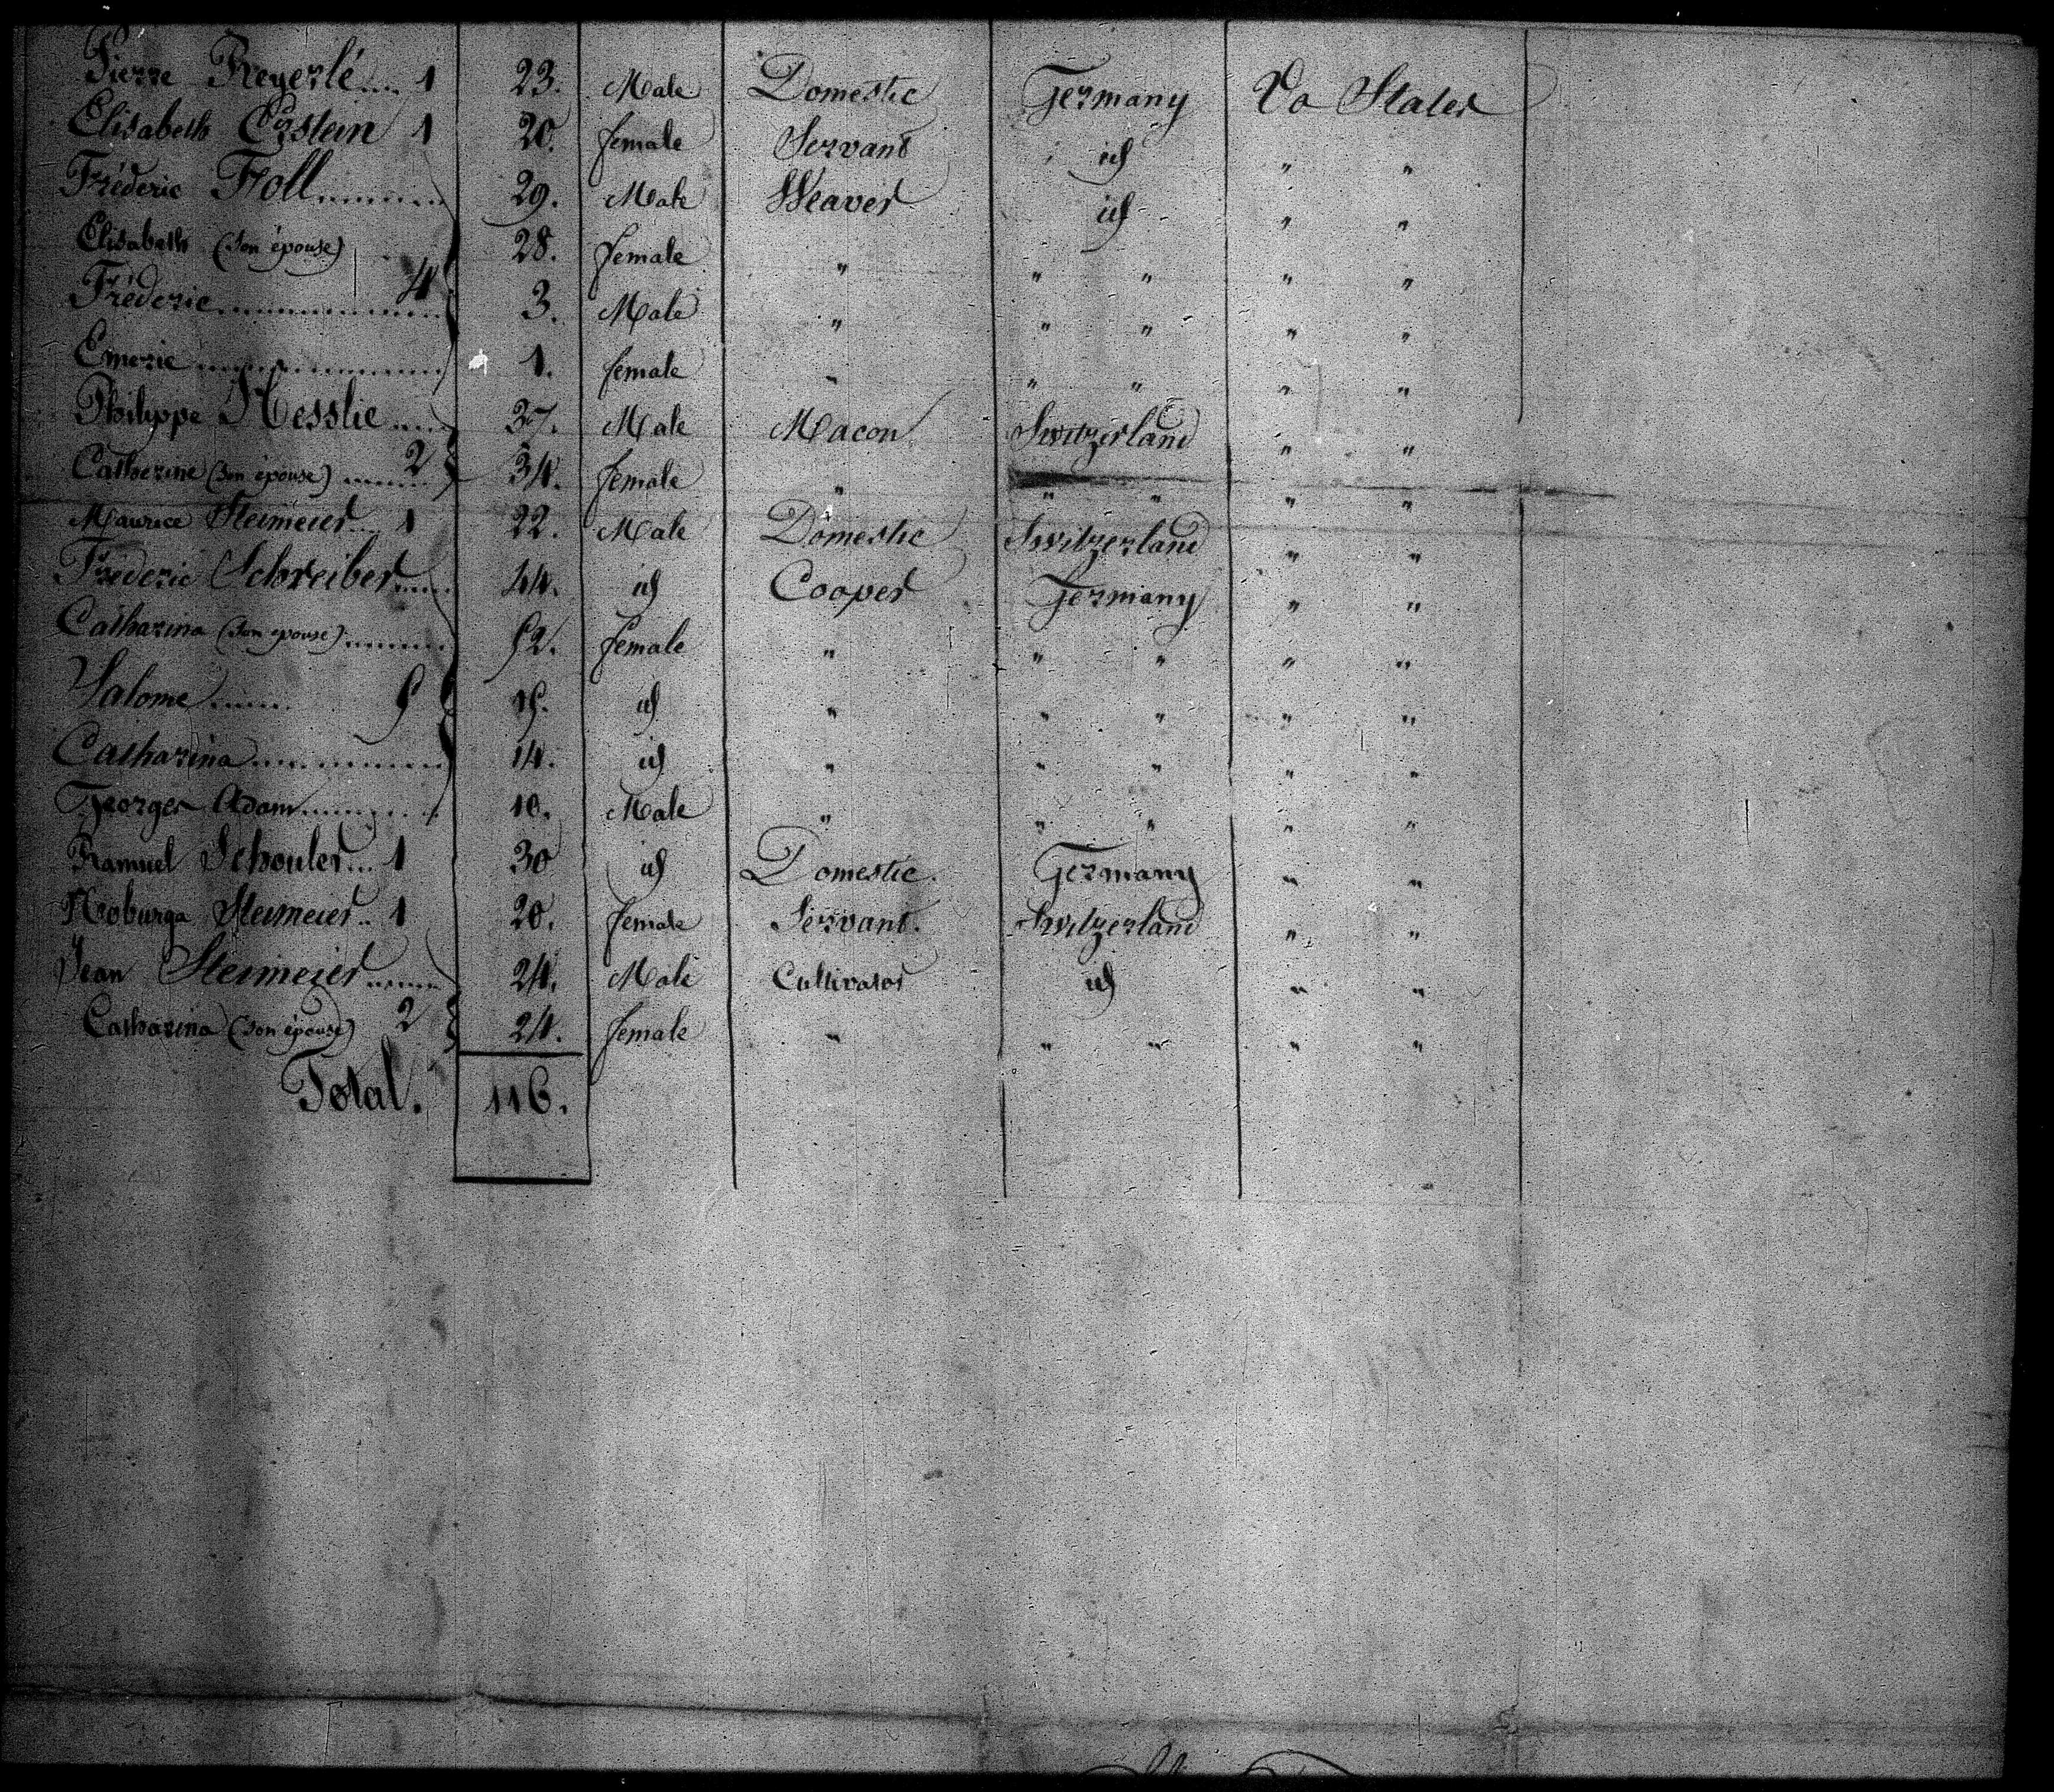 Pierre Regerlé.... 1 23. Male Domestic Germany Vo States
Elisabeth Erstein 1 20. female Servant id " "
Fréderic Froll 29. Male Weaver id " "
Elisabeth (Son épouse) 28. female " " " " "
Fréderic 4 3. Male " " " " "
Emerie 1. female " " " " "
Philippe Hesslie 37. Male Macon Switzerland " "
Catherine (Son épouse) 2 34. female " " " " "
Maurice Steimeier 1 22. Male Domestic Switzerland " "
Fréderic Schreiber 44. id Cooper Germany " "
Catharina (Son épouse) 52. female " " " " "
Salome 5 15. id " " " " "
Catharina 14. id " " " " "
Georges Adam 10. Male " " " " "
Samuel Schouler 1 30 id Domestic. Germany " "
Noburga Steimeier 1 20. female Servant. Switzerland " "
Jean Steimeier 24. Male Cultivator id " "
Catharina (Son épouse) 2 24. female " " " " "
Total. 116.